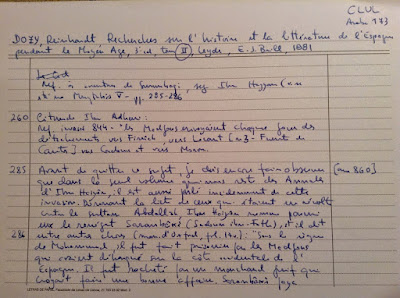 CLUL
Arabe 173
DOZY, Reinhardt Recherches sur l'histoire et la littérature de l'Espagne
pendant le Moyen Age, 3.ed tom II, Leyde, E.J. Brill, 1881
Ref. à aventura de Saranbaqui, seg. Ibn Hayyan
V - pp. 235-286
260 Citando Ibn Adhari:
Ref. invasão 844 - "les Madjous envoyaient chaque jour des
détachements vers Firrich, vers Lacant [n. 3 - Fuente de
Cantos] vers Cordoue et vers Moron.
285 Avant de quitter ce sujet, je dois encore faire observer [ano 860]
que dans le seul volume qui nous reste des Annales
d'Ibn Haiyan, il est aussi parlé incidemment de cette
invasion. Donnant la liste de ceux qui étaient en révolte
contre le sultan Abdallah Ibn Haiyan nomme parmi
eux le renégat Saranbaki (Sadoun ibn-Fath), et il dit
286 entre autres choses (man. d'Oxford, fol. 17r.): "Sous le règne
de Mohammed, il fut fait prisonnier par les Madjous
qui avaient débarqué sur la côte occidentale de l'
Espagne. Il fut racheté par un marchand juif que
croyait faire une bonne affaire. Saranbaki paya